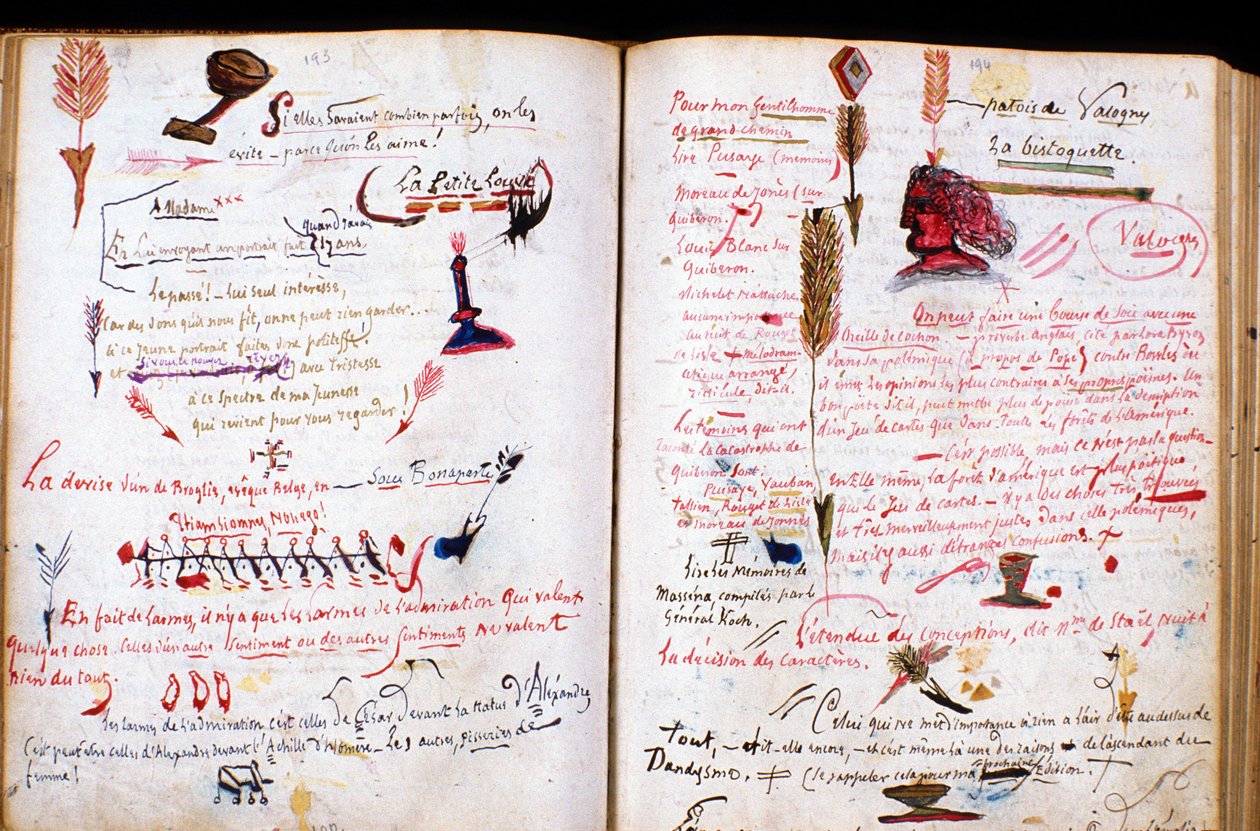 193
Si elles savaient combien parfois, on les
évite – parce qu'on les aime !
La Petite Louve
A Madame xxx
En lui envoyant un portrait fait quand j'avais
17 ans.
Le passé ! – lui seul intéresse,
Car des dons qu'il nous fit, on ne peut rien garder..
à ce jeune portrait faites une politesse !
et si vous le avec tristesse
à ce spectre de ma Jeunesse
qui revient pour vous regarder !
La devise d'un de Broglie, évêque Belge, en – Sous Bonaparte
En fait de larmes, il n'y a que les larmes de l'admiration qui valent
quelque chose. Celles d'un autre sentiment ou des autres sentiments ne valent
rien du tout.
Les larmes de l'admiration c'est celles de César devant la statue d'Alexandre
C'est peut être celles d'Alexandre devant l'Achille d'Homère – Les autres, pisseries de
femme !
194
Pour mon Gentilhomme
de grand chemin
Lire Puisaye (memoires)
Moreau de Jonès (sur
Quiberon.
Louis Blanc sur
Quiberon.
Michelet n'attache
aucune importance
au récit de Rouget
de Lisle + Mélodrame
arrangé,
ridicule, dit-il.
Les témoins qui ont
raconté la catastrophe de
Quiberon sont :
Puisaye, Vauban
Tallien, Rouget de Lisle
et moreau de Jonnes
Lire les Mémoires de
Masséna compilés par le
Général Koch.
– patois de Valogny
La bistoquette.
Valognes
On peut faire une bourse de soie avec une
Oreille de cochon. – proverbe anglais cité par lord Byron
dans sa polémique (à propos de Pope) contre Bowles où
il émet les opinions les plus contraires à ses propres poëmes. Un
bon poëte dit-il, peut mettre plus de poésie dans la description
d'un Jeu de cartes que dans toutes les forêts de l'Amérique.
– C'est possible, mais ce n'est pas la question –
En elle même, la forêt d'amérique est plus poétique
que le Jeu de cartes. – Il y a des choses très trouvées
et très merveilleusement justes dans cette polémique,
mais il y a aussi d'étranges confusions.
L'étendue des conceptions, dit Mme de Staël nuit à
la décision des caractères.
Celui qui ne met d'importance à rien a l'air d'être au dessus de
tout, – dit-elle encore, – et c'est même là une des raisons de l'ascendant du
Dandysme. (se rappeler cela pour ma prochaine Edition.